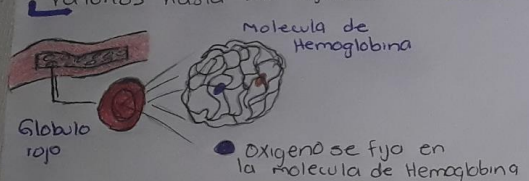 hasta
Molecula de
Hemoglobina
Globulo
rojo
Oxigeno se fijo en
la molecula de Hemoglobina